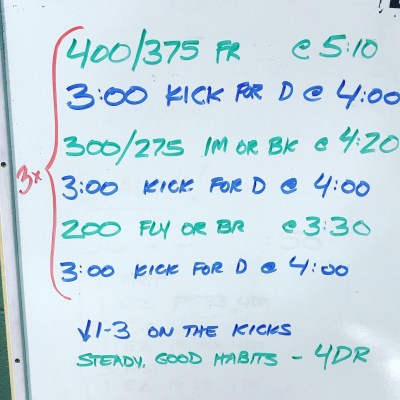 400/375 FR @ 5:10
3:00 KICK FOR D @ 4:00
300/275 IM OR BK @ 4:20
3x
3:00 KICK FOR D @ 4:00
200 FLY OR BR @ 3:30
3:00 KICK FOR D @ 4:00
↓1-3 ON THE KICKS
STEADY, GOOD HABITS - 4DR